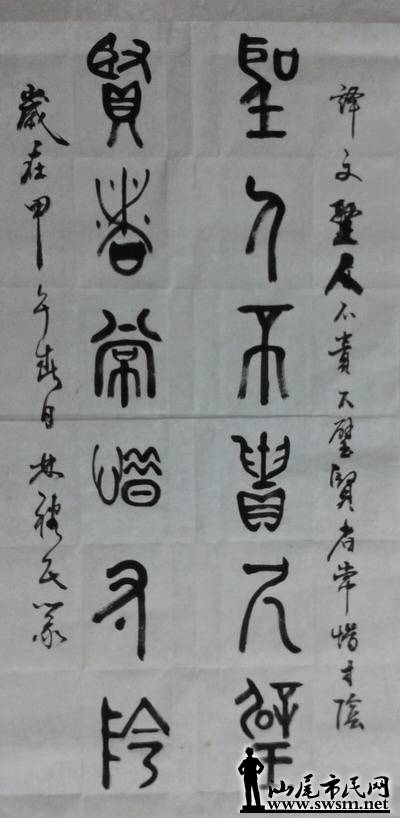 译文聖人不貴尺璧賢者常惜寸陰
聖人不貴尺璧
賢者常惜寸陰
歲在甲午春日林穂民篆
汕尾市民网
www.swsm.net